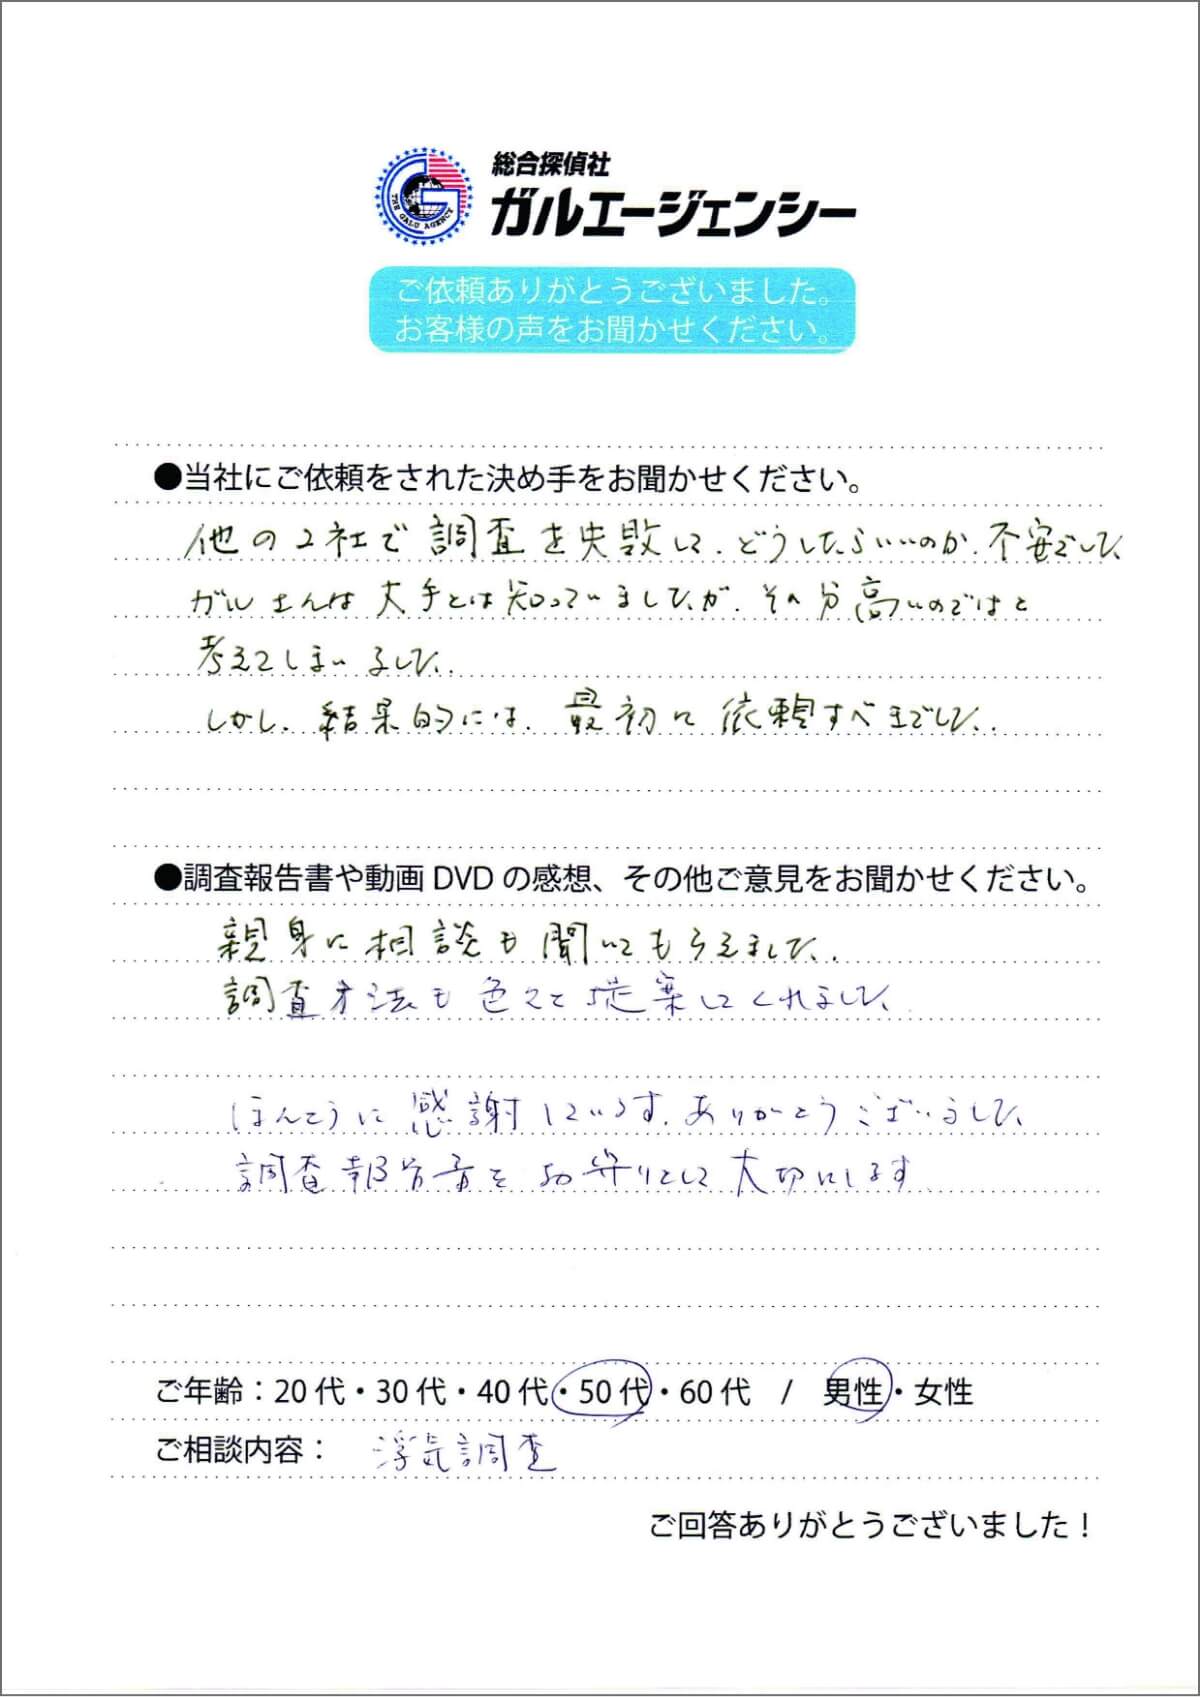 総合探偵社
ガルエージェンシー
THE GALU AGENCY
ご依頼ありがとうございました。
お客様の声をお聞かせください。
●当社にご依頼をされた決め手をお聞かせください。
他の2社で調査を失敗して、どうしたらいいのか、不安でした、
ガルさんは大手とは知っていましたが、その分高いのではと
考えてしまいました。
しかし、結果的には、最初に依頼すべきでした。
●調査報告書や動画 DVD の感想、その他ご意見をお聞かせください。
親身に相談も聞いてもらえました。
調査方法も色々と提案してくれました、
ほんとうに感謝しています。ありがとうございました、
調査報告書をお守りとして大切にします
ご年齢：20 代・30 代・40 代・50 代・60 代 / 男性・女性
ご相談内容： 浮気調査
ご回答ありがとうございました！